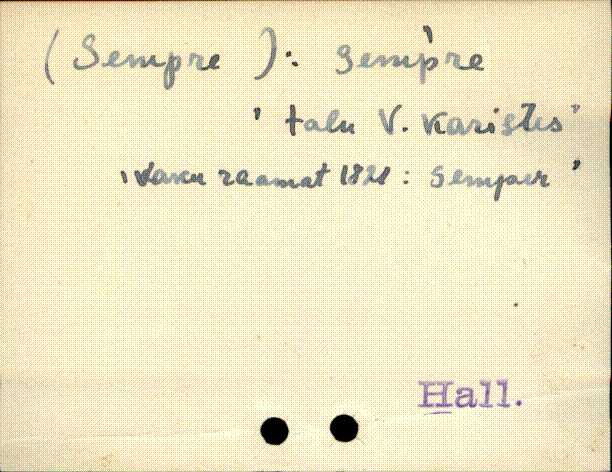 (Sempre): sem̀pre
' talu V. Karistes'
' Laku raamat 1821: Semper '
Hall.